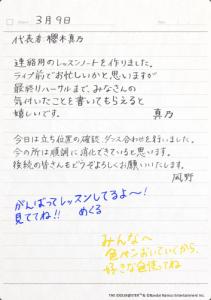 3月9日
代表者 櫻木真乃
連絡用のレッスンノートを作りました。
ライブ前でお忙しいかと思いますが
最終リハーサルまで、みなさんの
気付いたことを書いてもらえると
嬉しいです。
真乃
今日は立ち位置の確認、ダンス合わせを行いました。
今の所は順調に消化できていると思います。
後続の皆さんもどうぞよろしくお願いいたします。
風野
がんばってレッスンしてるよ〜!
見ててね!!
めぐる
みんなへ
色ペンおいていくから、
好きな色使ってね
THE IDOLM@STER™& ©Bandai Namco Entertainment Inc.